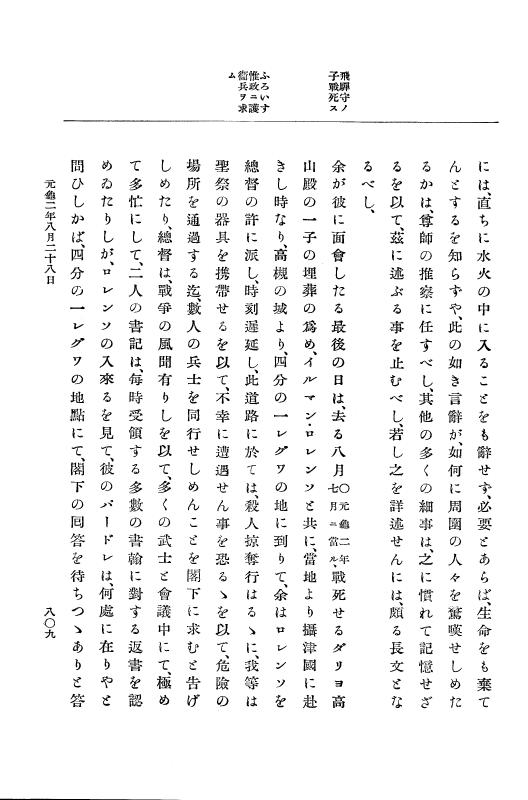 飛驒守ノ
子戰死ス
ふろいす
惟政ニ護
衞兵ヲ求
ム
には、直ちに水火の中に入ることをも辭せず、必要とあらば、生命をも棄て
んとするを知らずや、此の如き言辭が、如何に周圍の人々を驚嘆せしめた
るかは、尊師の推察に任すべし、其他の多くの細事は、之に慣れて記憶せざ
るを以て、茲に述ぶる事を止むべし、若し之を詳述せんには、頗る長文とな
るべし、
余が彼に面會したる最後の日は、去る八月〇元龜二年七月ニ當ル、戰死せるダリヨ高
山殿の一子の埋葬の爲め、イルマン・ロレンソと共に、當地より攝津國に赴
きし時なり、高槻の城より、四分の一レグワの地に到りて、余はロレンソを
總督の許に派し、時刻遲延し、此道路に於ては、殺人掠奪行はるゝに、我等は
聖祭の器具を携帶せるを以て、不幸に遭遇せん事を恐るゝを以て、危險の
場所を通過する迄、數人の兵士を同行せしめんことを閣下に求むと告げ
しめたり、總督は、戰爭の風聞有りしを以て、多くの武士と會議中にて、極め
て多忙にして、二人の書記は、每時受領する多數の書翰に對する返書を認
めゐたりしが、ロレンソの入來るを見て、彼のパードレは、何處に在りやと
問ひしかば、四分の一レグワの地點にて、閣下の囘答を待ちつゝありと答
元龜二年八月二十八日
八〇九